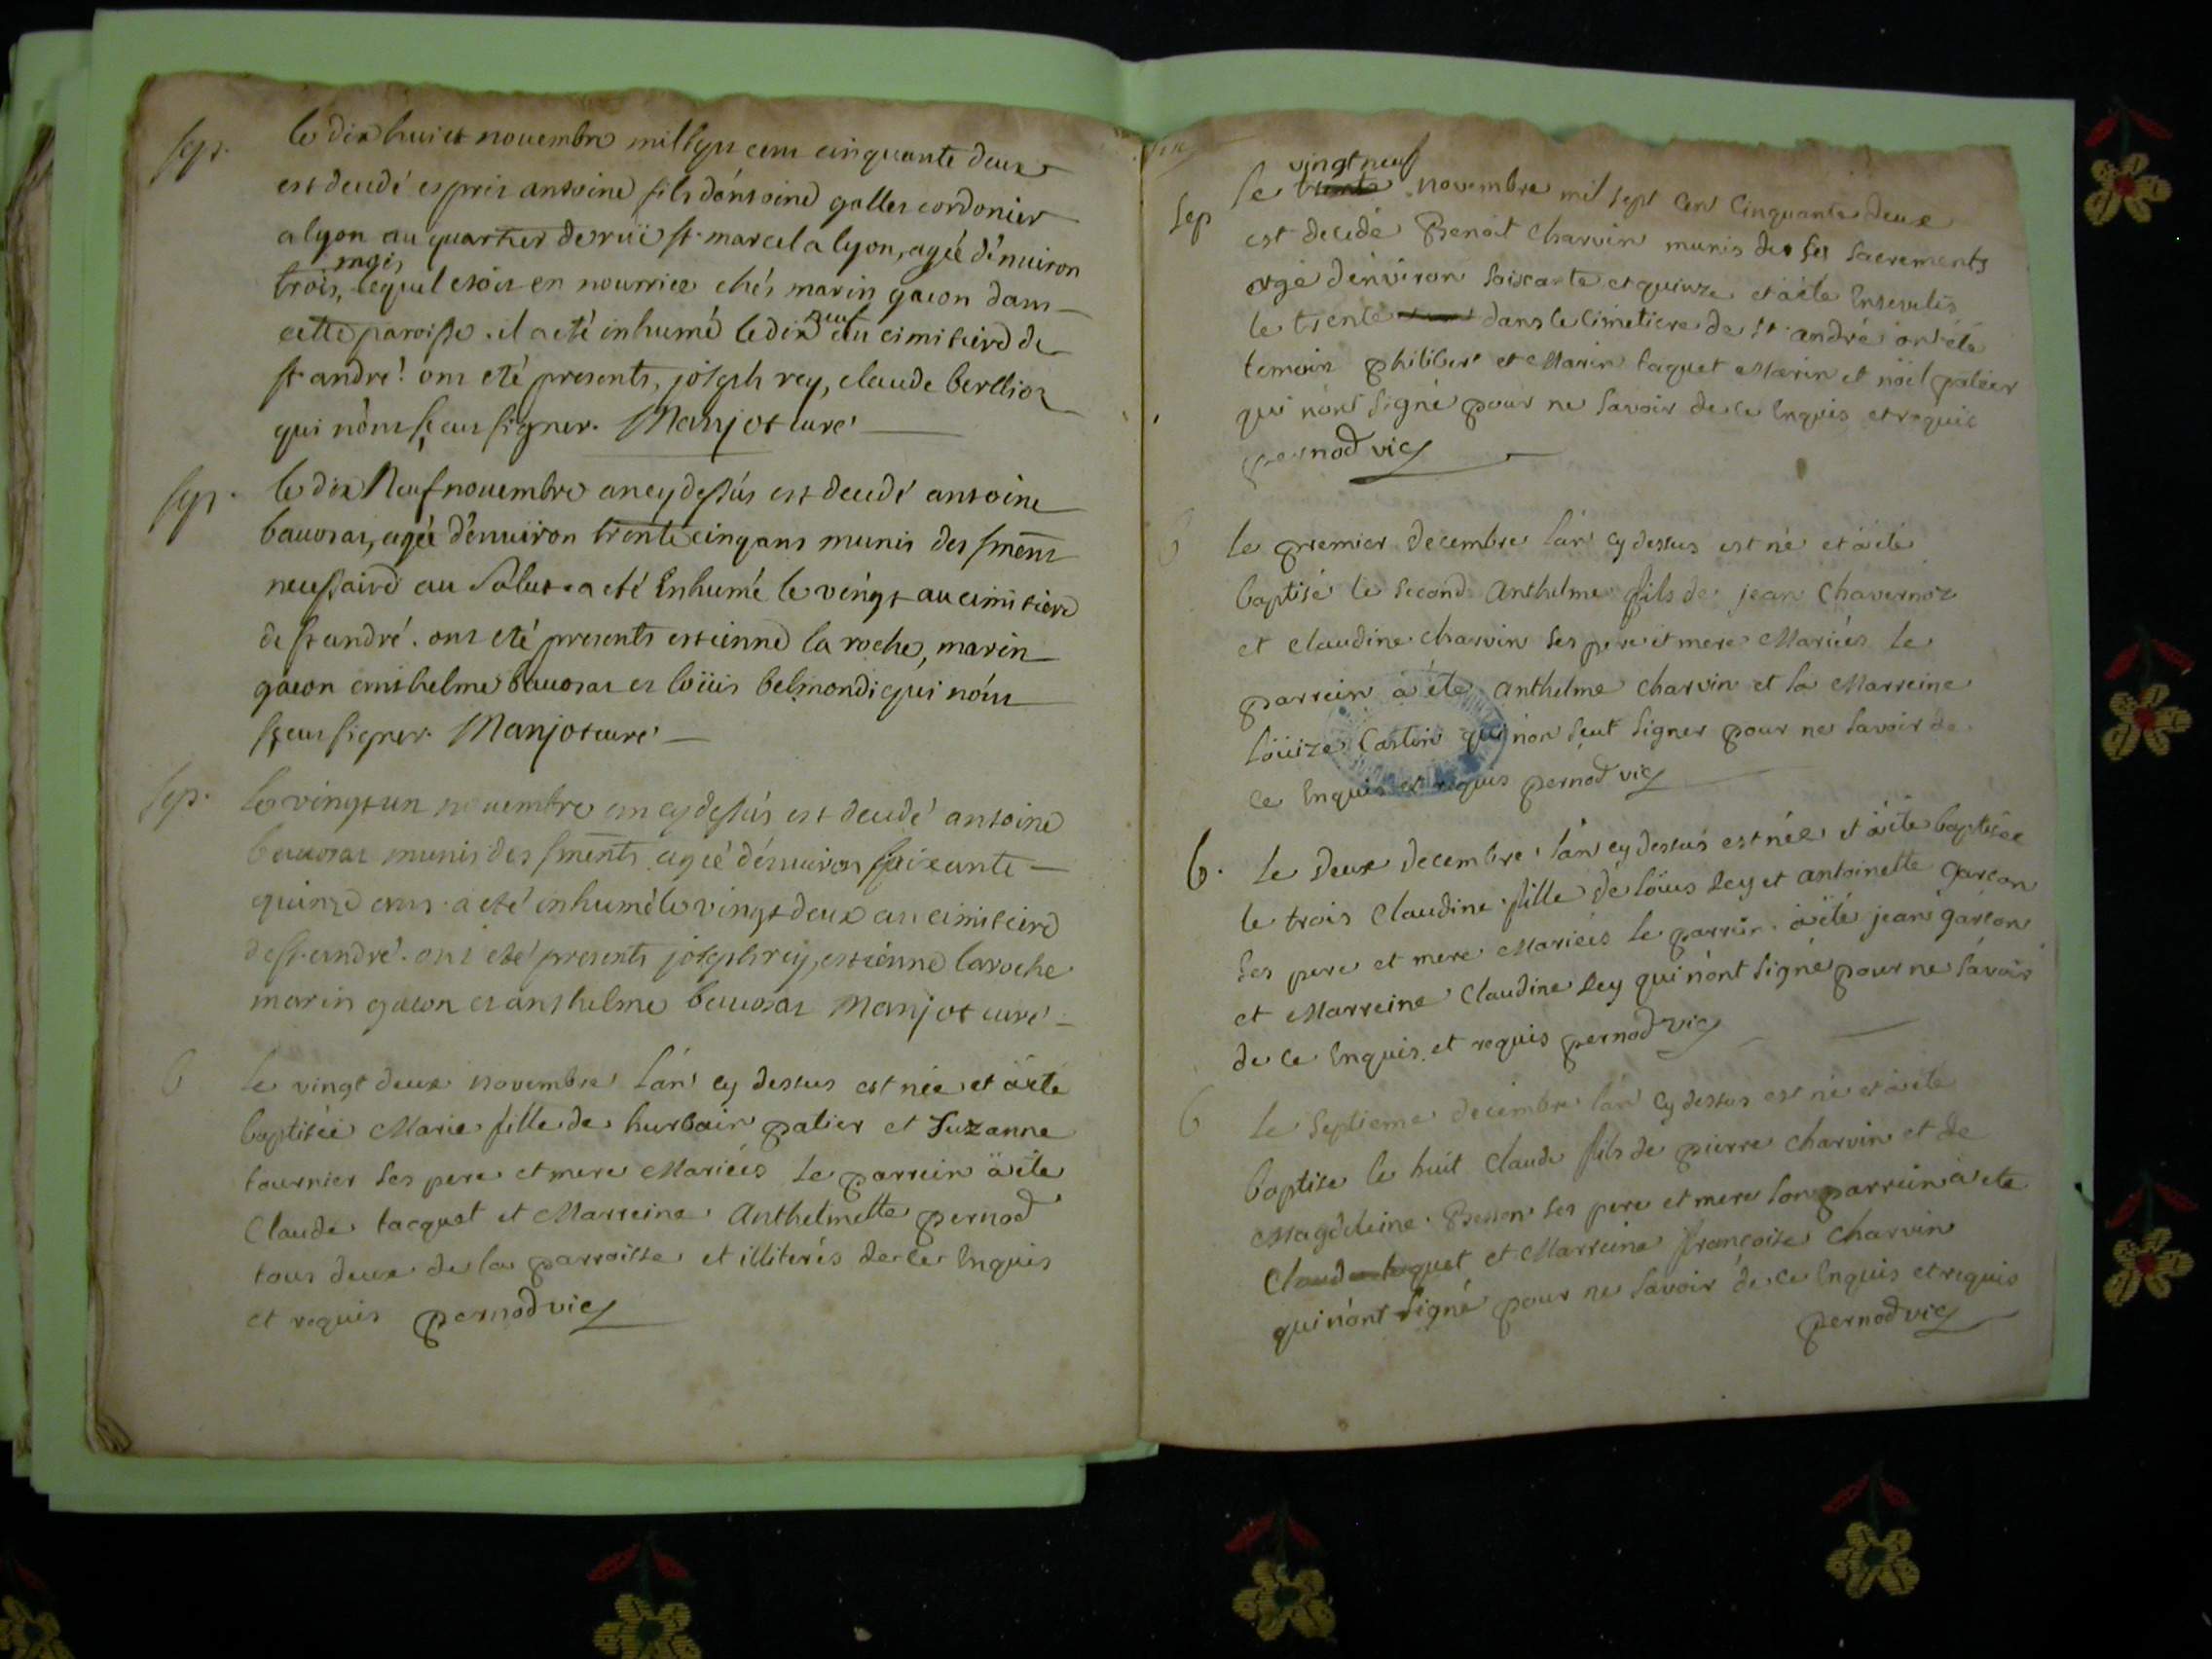 Sept. le dix huict novembre mil sept cens cinquante deux
est decedé esprit antoine fils d'antoine galles cordonier
a lyon au quartier de ruë st. marcel a lyon, agéé d'environ
mois,
trois, lequel etoit en nourrice chés marin gacon dans
neuf
cette paroisse. il a eté inhumé le dix au cimitierd de
st. andré. ont eté presents, joseph rey, claude berthier
qui n'ont sçeut signer. Manjot curé
Sept. le dix Neuf novembre an cy dessus est decedé antoine
agéé d'environ trente cinq ans munis des sments
necessaird au Salut. a eté Enhumé le vingt au cimitiere
de st andré. ont eté presents estienne la roche, marin
gacon anthelme et loüis belmondi qui n'ont
sçeut signer. Manjot curé
Sep. le vingt un novembre an cy dessus est decedé antoine
munis des sments agéé d'environ soixante
quinze ans. a eté inhumé le vingt deux au cimitierd
de st. andré. ont eté presents joseph rey, estienne laroche
marin gacon et anthelme Manjot curé
b le vingt deux novembre l'an cy dessus est née et a été
baptiséé Marie fille de hurbain patier et Suzanne
tournier ses pere et mere Mariéés le parrein a éte
Claude tacquet et Marreine Anthelmette pernod
tous deux de la parroisse et illiterés de ce Enquis
et requis pernod vic
vingt neuf
Sep le trente novembre mil sept cent Cinquante deux
est decedé Benoit Charvin munis des ses sacrements
agé d'environ soixante et quinze et a éte Ensevelis
le trente dans le cimetiere de st. andré ont été
temoin philibert et Marin taquet Marin et noël patier
qui n'ont signé pour ne savoir de ce Enquis et requis
pernod vic
b le premier decembre l'an cy dessus est né et a été
baptisé le second Anthelme fils de jean Chavernoz
et Claudine charvin ses pere et mere Mariéés le
parrein a été anthelme charvin et la Marreine
loüize Castin qui n'on seut signer pour ne savoir de
ce Enquis et requis pernod vic
b. le deux decembre l'an cy dessus est née et a été baptiséé
le trois Claudine fille de loüis Rey et antoinette garcon
ses pere et mere Mariéés le parrein a été jean garcon
et Marreine Claudine Rey qui n'ont signé pour ne savoir
de ce Enquis et requis pernod vic
b le septieme decembre l'an cy dessus est né et a été
baptise le huit Claude fils de pierre charvin et de
Magdeleine Besson ses pere et mere son parrein a eté
Claude taquet et Marreine françoise Charvin
qui n'ont signé pour ne savoir de ce Enquis et requis
pernod vic